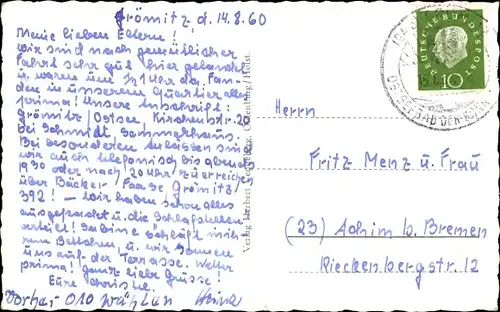 Grömitz, d. 14.8.60
Meine lieben Eltern!
Wir sind nach gemütlicher
Fahrt sehr gut hier gelandet
u. waren um ½1 Uhr da. Fan-
den in unserem Quartier alles
prima! Unsere Anschrift:
Grömitz/Ostsee, Kirchenstr. 20
bei Schmidt, Sommerhaus.
Bei besonderen Anlässen sind
wir auch telefonisch bis abends
19³⁰ oder nach 20 Uhr zu erreichen
über Bäcker Paasge Grömitz/
392! – Wir haben schon alles
ausgepackt u. die Schlafstellen
verteilt! Sabine schläft
zum Bettchen, u. wir sonnen
uns auf der Terrasse. Wetter
prima! Ganz liebe Grüße!
Eure Christel
Vorher 010 wählen Heinz
Verlag Herbert Oldenburg/Holst.
DEUTSCHE BUNDESPOST
10
Herrn
Fritz Menz u. Frau
(23) Achim b. Bremen
Rieckenbergstr. 12